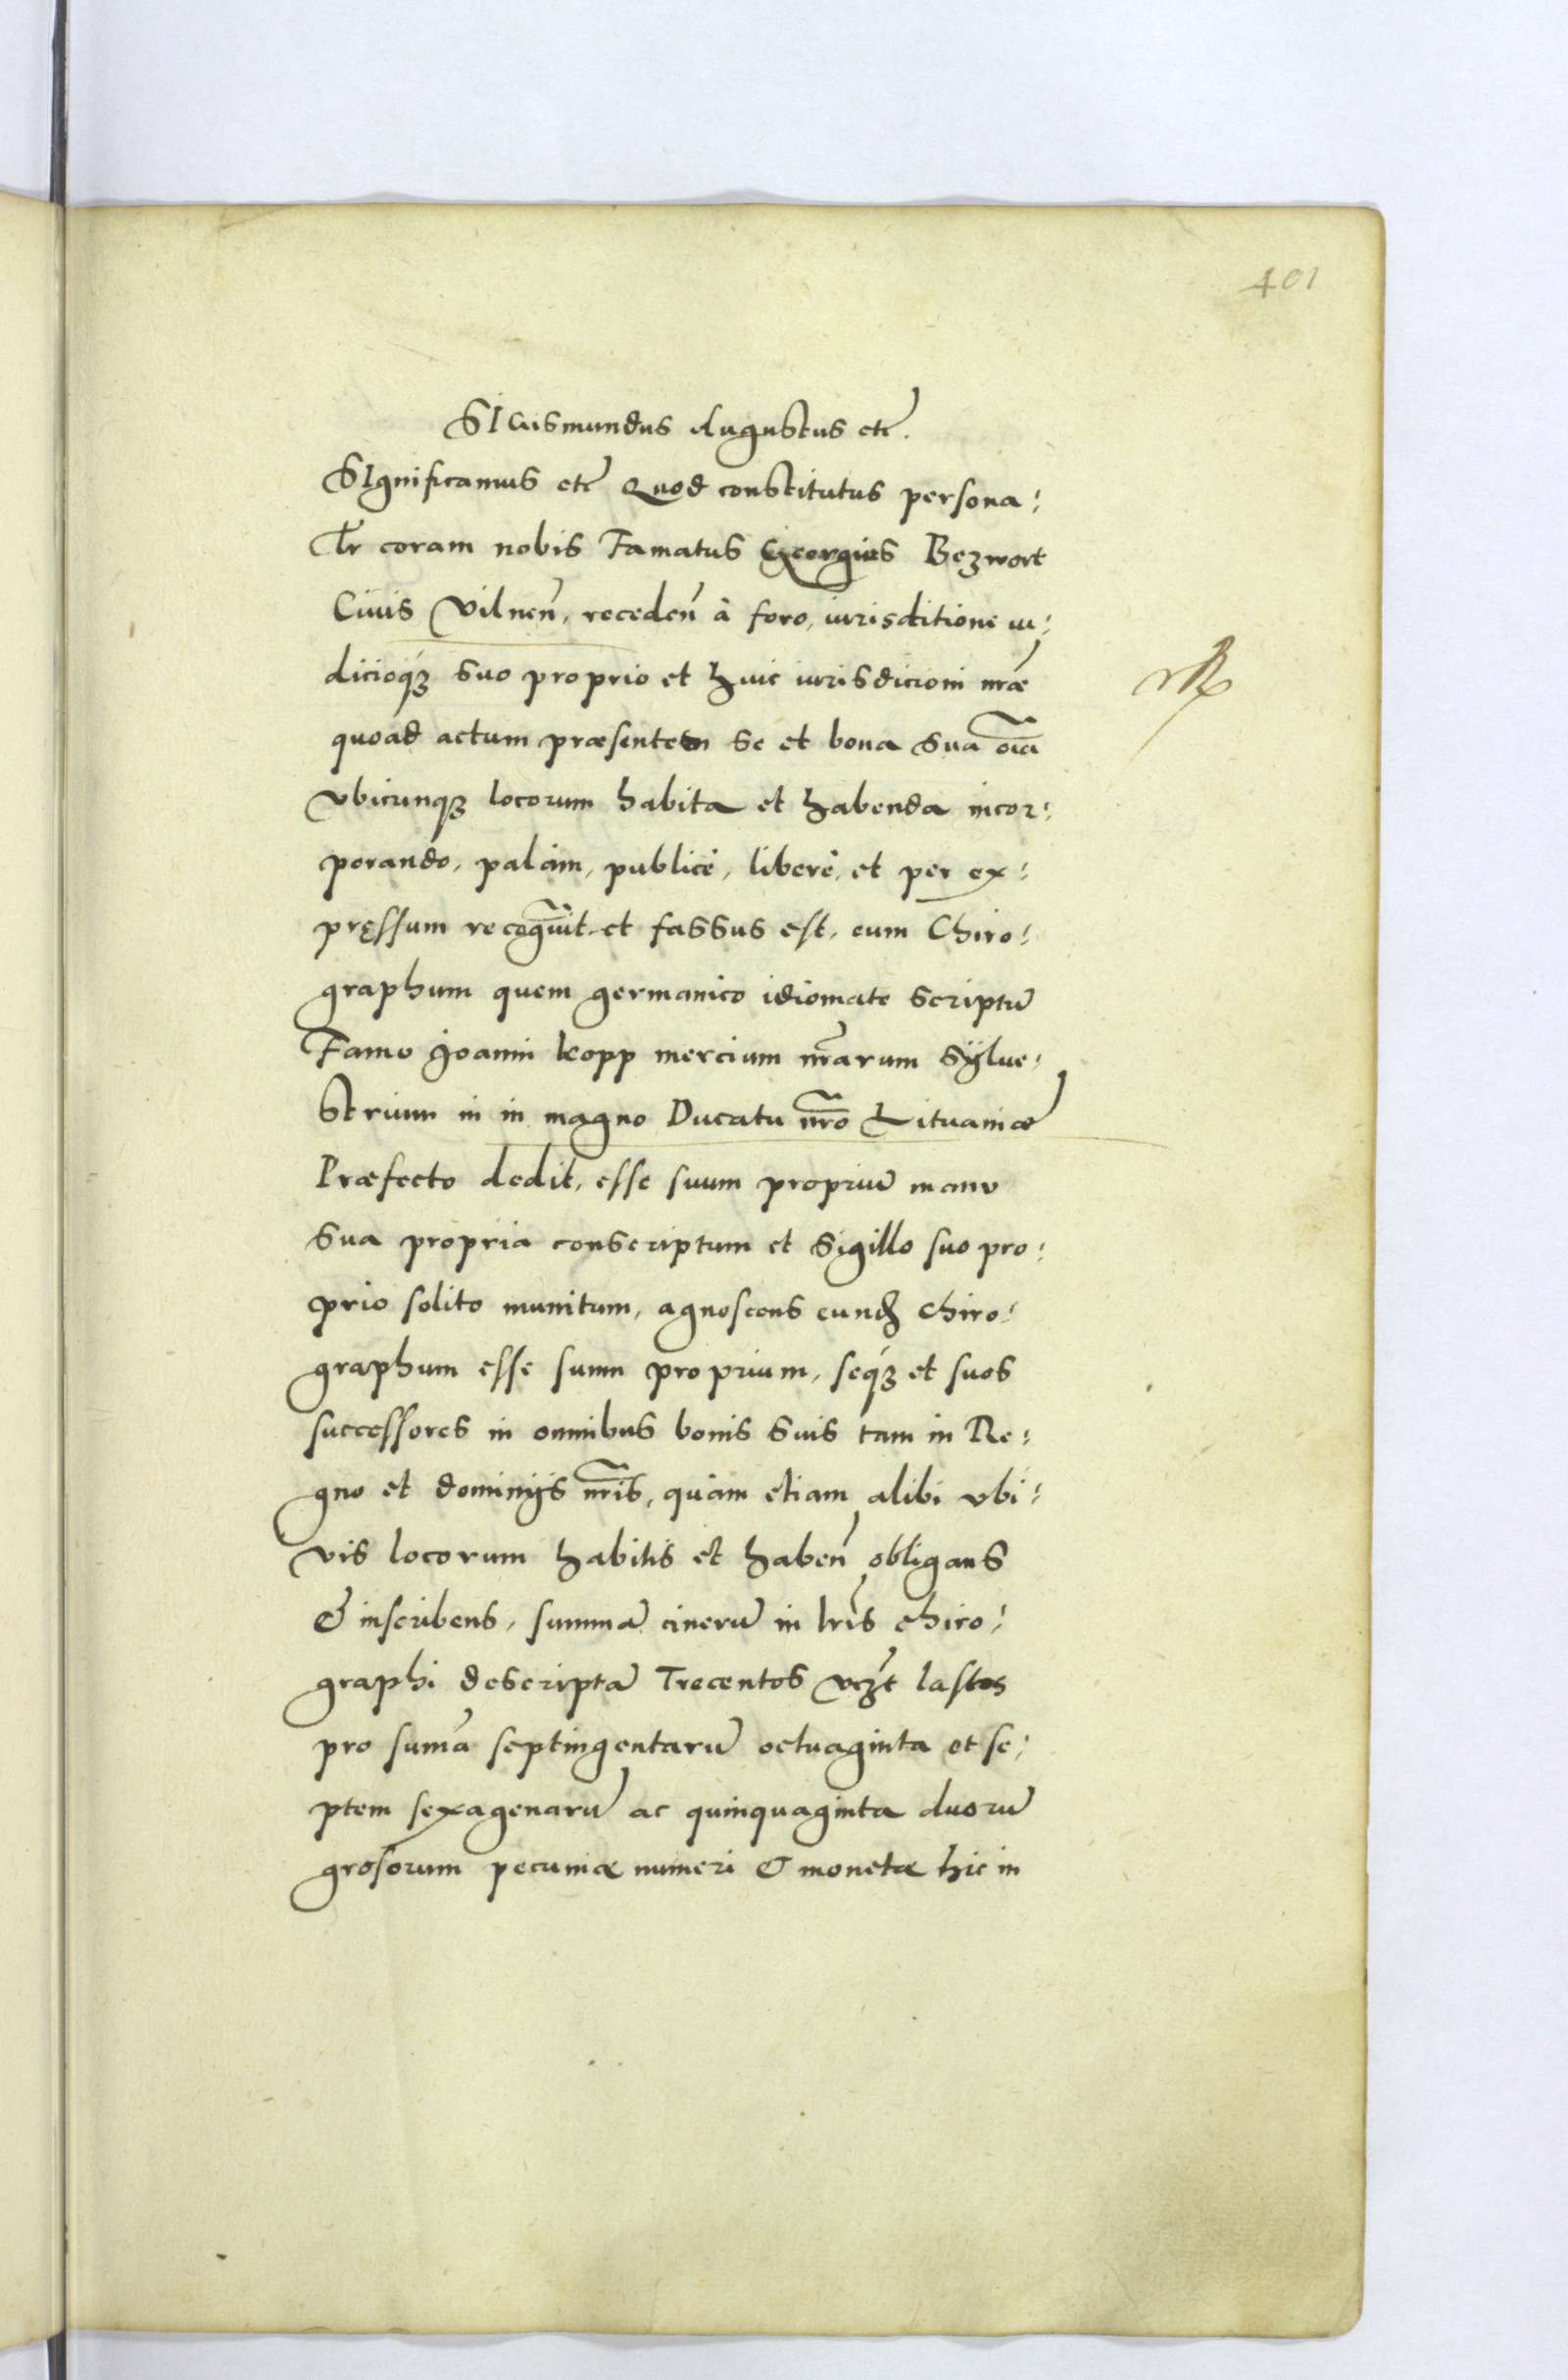 401
SIGismundus Augustus etc̃.
SIgnificamus etc̃ Quod constitutus persona:
lr̃ coram nobis Famatus Georgius Bezwort
Ciuis Vilneñ, recedeñ à foro, iurisditione iu:
dicioqꝫ suo proprio et huic iurisdicioni nr̃æ
quoad actum præsentem se et bona sua oĩa
vbicunqꝫ locorum habita et habenda incor:
porando, palàm, publicè, liberè, et per ex:
pręssum recognuit et fassus est, eum Chiro:
graphum quem germanico idiomate scriptũ
Famo Joanni Kopp mercium nr̃arum Sÿlue:
strium in in magno Ducatu nr̃o Lituaniæ
Præfecto dedit, esse suum propriũ manu
sua propria conscriptum et sigillo suo pro:
prio solito munitum, agnoscens eundẽ chiro:
graphum esse suum proprium, seqꝫ et suos
successores in omnibus bonis suis tam in Re:
gno et dominijs nr̃is, quàm etiam alibi vbi:
vis locorum habitis et habeñ obligans
& inscribens, summã cinerũ in lr̃is chiro:
graphi descriptã Trecentos vcꝫt lastos
pro sum̃a septingentarũ octuaginta et se:
ptem sexagenarũ ac quinquaginta duorũ
grosorum pecuniæ numeri & monetæ hic in